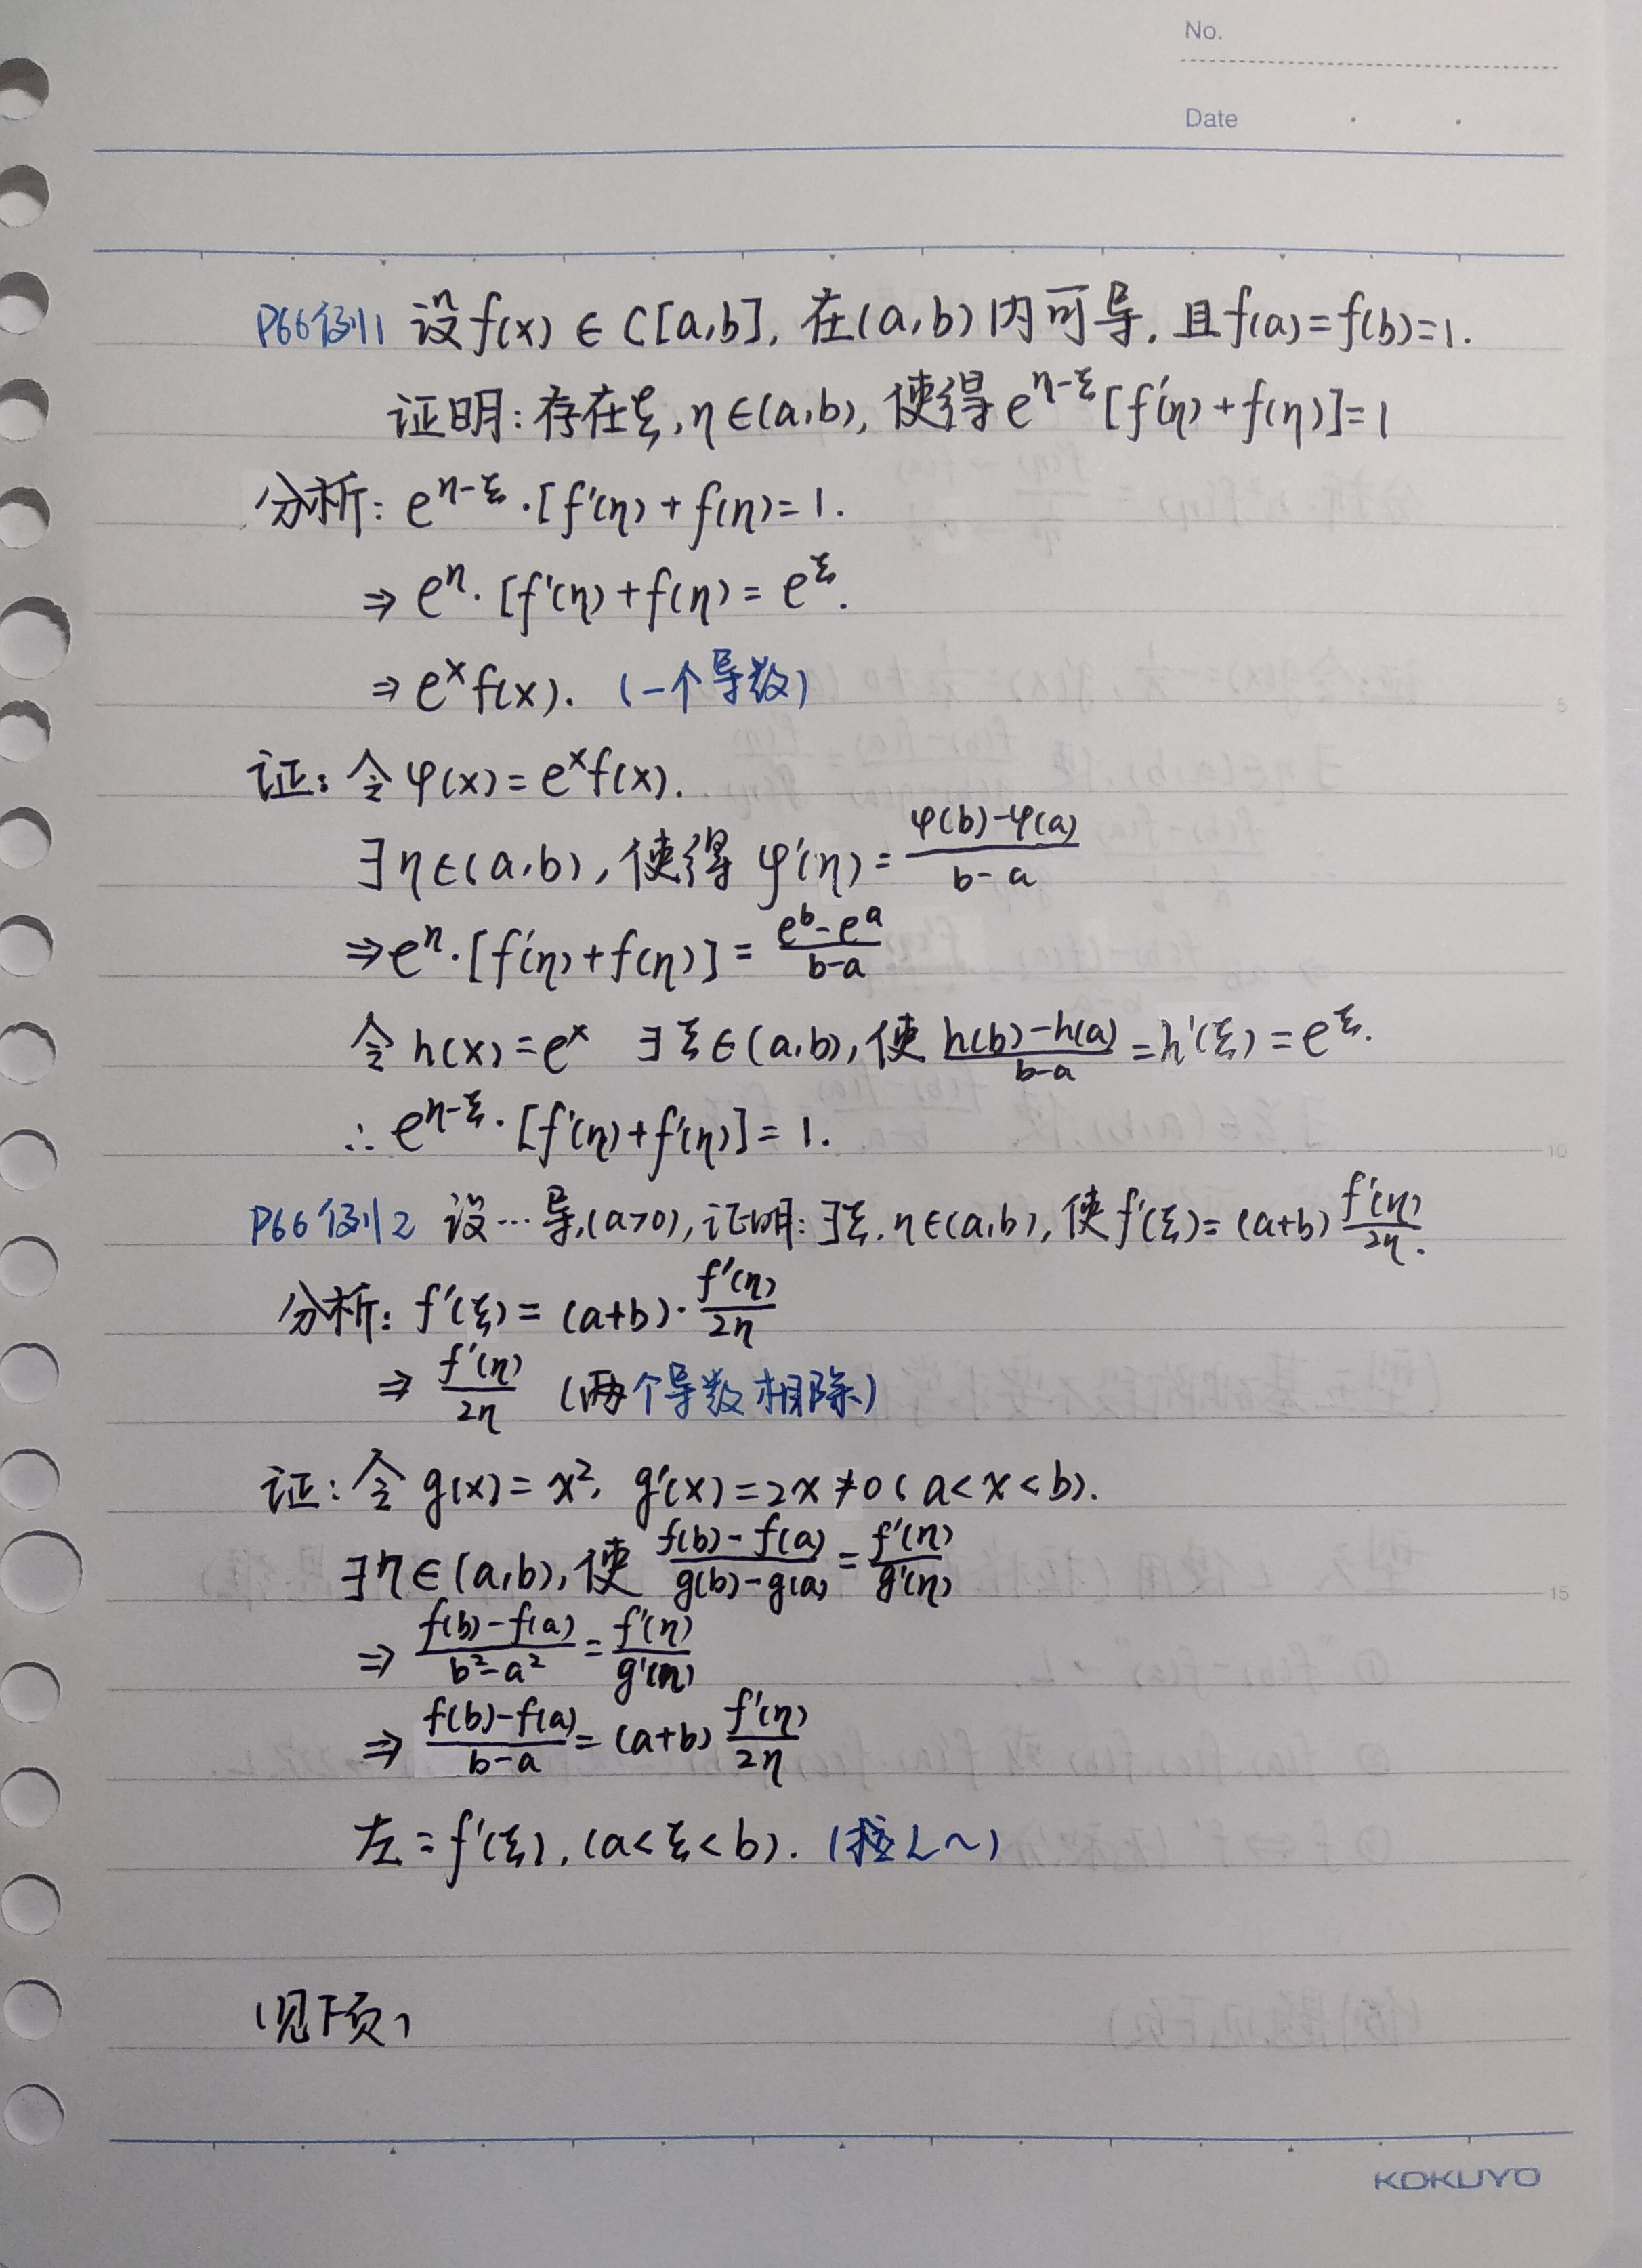 No.
Date
P66例1 设f(x)∈C[a,b], 在(a,b)内可导, 且f(a)=f(b)=1.
证明: 存在ξ,η∈(a,b), 使得e^{η-ξ}[f'(η)+f(η)]=1
分析: e^{η-ξ}·[f'(η)+f(η)=1.
⇒ e^η·[f'(η)+f(η)=e^ξ.
⇒ e^x f(x). (一个导数)
证: 令φ(x)=e^x f(x).
∃η∈(a,b), 使得 φ'(η)=\frac{φ(b)-φ(a)}{b-a}
⇒e^η·[f'(η)+f(η)]=\frac{e^b-e^a}{b-a}
令h(x)=e^x ∃ξ∈(a,b), 使\frac{h(b)-h(a)}{b-a}=h'(ξ)=e^ξ.
∴e^{η-ξ}·[f'(η)+f'(η)]=1.
P66例2 设…导,(a>0),证明:∃ξ,η∈(a,b),使f'(ξ)=(a+b)\frac{f'(η)}{2η}.
分析: f'(ξ)=(a+b)·\frac{f'(η)}{2η}
⇒ \frac{f'(η)}{2η} (两个导数相除)
证: 令g(x)=x², g'(x)=2x≠0(a<x<b).
∃η∈(a,b), 使 \frac{f(b)-f(a)}{g(b)-g(a)}=\frac{f'(η)}{g'(η)}
⇒ \frac{f(b)-f(a)}{b²-a²}=\frac{f'(η)}{g'(η)}
⇒ \frac{f(b)-f(a)}{b-a}=(a+b)\frac{f'(η)}{2η}
左=f'(ξ),(a<ξ<b). (拉L~)
(见下页)
5
10
15
KOKUYO